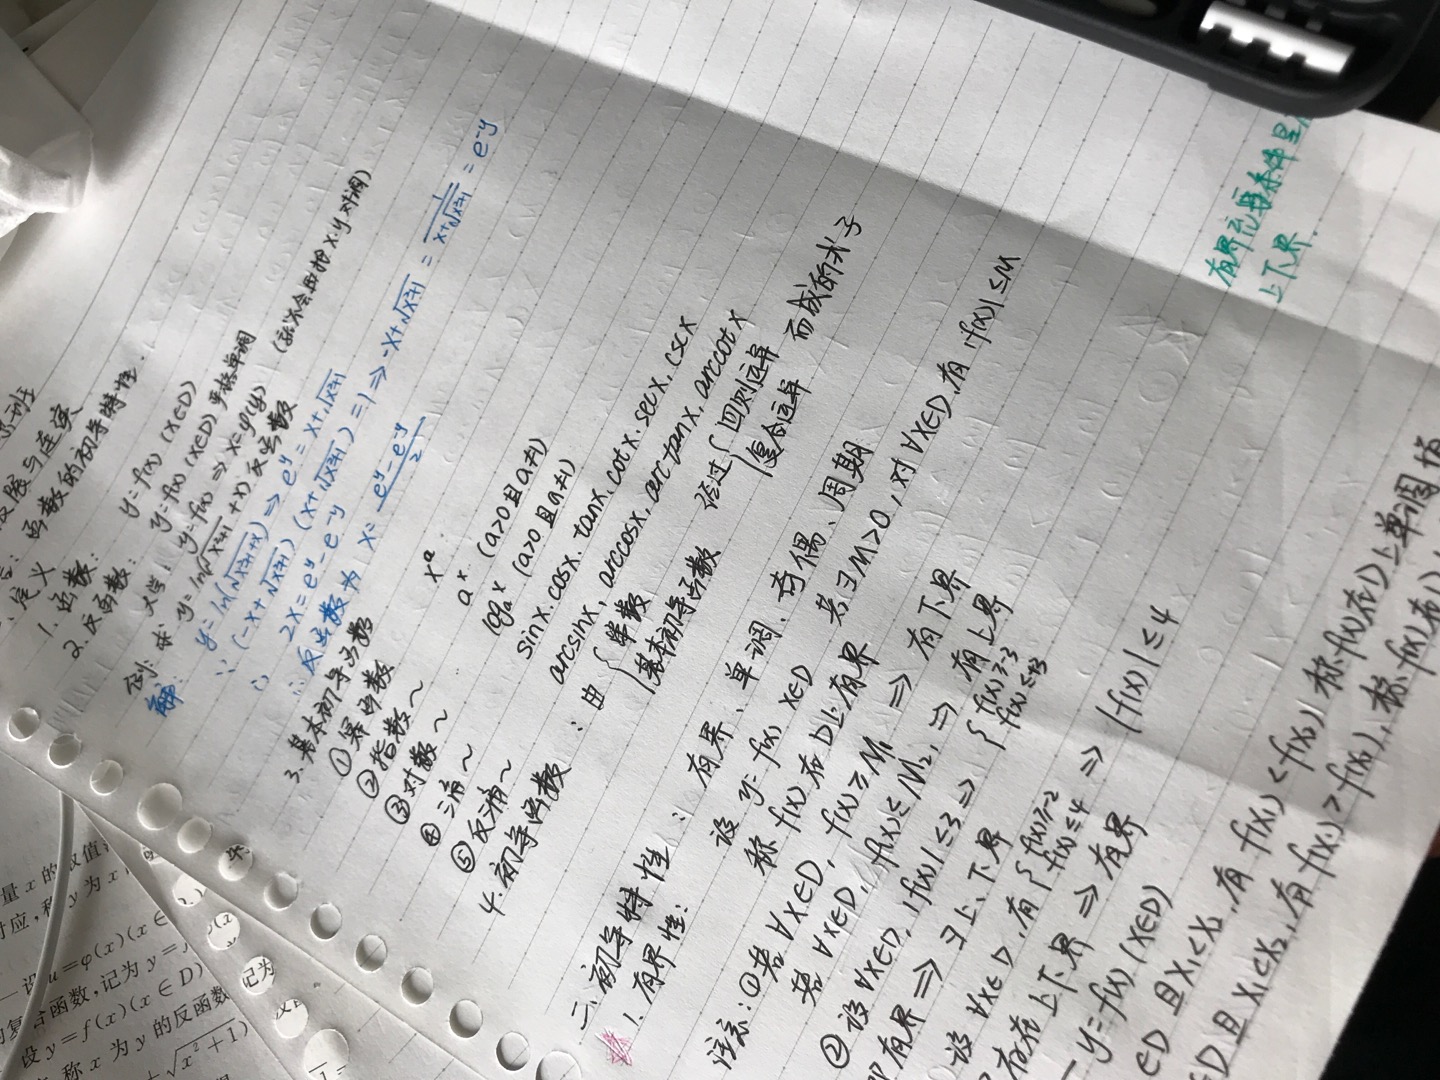 极限与连续
函数的初等特性.
定义
1. 函数: y=f(x) (x∈D)
2. 反函数: y=f(x) (x∈D) 严格单调
大学: y=f(x) ⇒ x=φ(y) (不会把 x.y 对调)
例: 求 y=ln(√x²+1 + x) 反函数
解: y=ln(√x²+1+x) ⇒ e^y = x+√x²+1
∵ (-x+√x²+1) (x+√x²+1) =1 ⇒ -x+√x²+1 = 1/(x+√x²+1) = e^-y
∴ 2x=e^y-e^-y
∴ 反函数为 x= (e^y-e^-y)/2
3. 基本初等函数
① 幂函数 x^a.
② 指数~ a^x (a>0且a≠1)
③ 对数~ log_a^x (a>0且a≠1)
④ 三角~ sinx. cosx. tanx. cotx. secx. cscx
⑤ 反三角~ arcsinx, arccosx, arctanx, arccotx
4. 初等函数: 由 { 常数 基本初等函数 经过 { 四则运算 复合运算 而成的式子
二. 初等特性: 有界、单调、奇偶、周期
1. 有界性: 设 y=f(x) x∈D 若∃M>0, 对∀x∈D, 有 |f(x)|≤M
称 f(x) 在 D上有界
注示: ① 若 ∀x∈D, f(x)≥M₁ ⇒ 有下界
若 ∀x∈D, f(x)≤M₂ ⇒ 有上界
② 设∀x∈D, |f(x)|≤3 ⇒ { f(x)≥-3 f(x)≤3
即有界 ⇒ ∃上、下界
设 ∀x∈D, 有 { f(x)≥-2 f(x)≤4 ⇒ |f(x)|≤4
存在上下界 ⇒ 有界
y=f(x) (x∈D)
∈D 且 x₁<x₂, 有 f(x₁)<f(x₂) 称f(x)在D上单调增
∈D且 x₁<x₂, 有 f(x₁)>f(x₂), 称 f(x)在
有界充要条件是
上下界.
量 x 的取值
对应,称 y 为 x
设 u=φ(x)(x∈
复合函数,记为 y=
设 y=f(x)(x∈D)
称 x 为 y 的反函数
记为
+√x²+1)